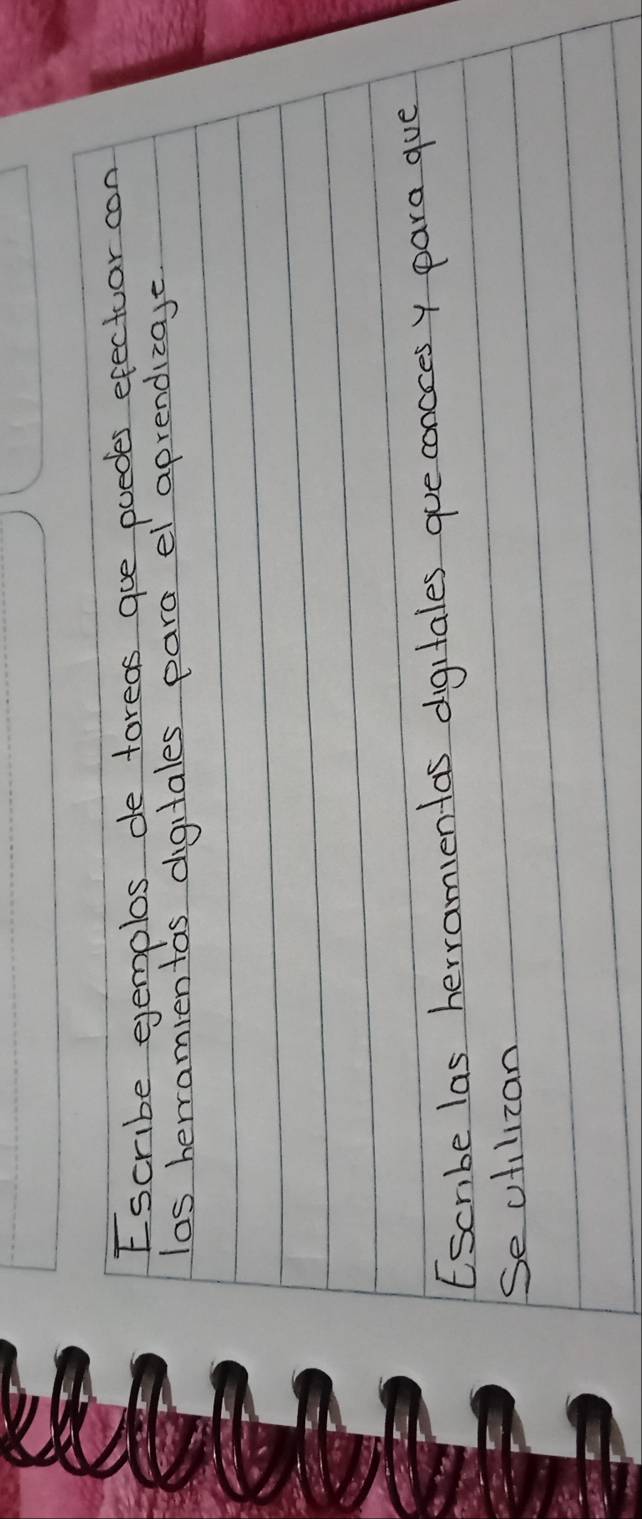 Escribe ejemplos de tareas que puedes efectuar con
las herramientas digitales para el aprendizaje
Escribe las herramientas digitales que conoces y para que
se utilizan